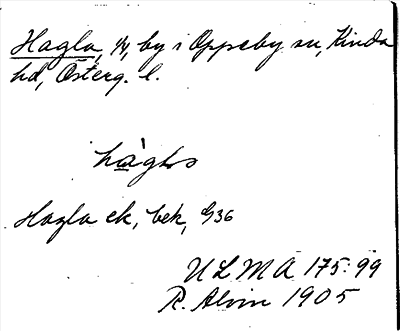 Hagla, 1/4, by i Oppeby sn, Kinda
hd, Österg. l.
hàgla
Hagla ek, bek, G36
ULMA 175:99
R. Alvin 1905